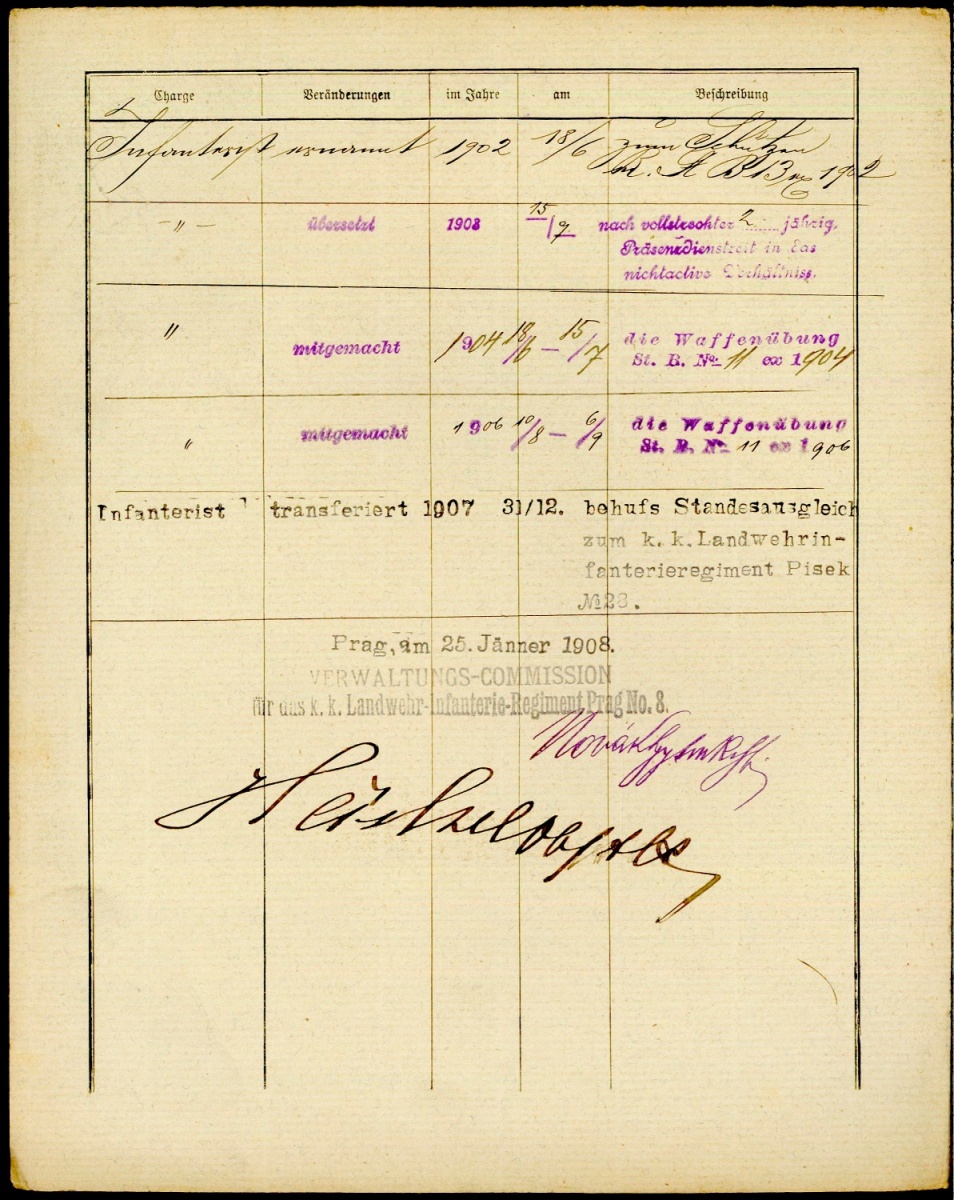 Charge Veränderungen im Jahre am Beschreibung
Infanterist ernannt 1902 18/6 zum Schützen
R. A B 13 ex 1902
-"- übersetzt 1903 15/9 nach vollstreckter 2 jährig.
Präsenzdienstzeit in das
nichtactive Verhältniss.
" mitgemacht 1904 18/6 - 15/7 die Waffenübung
St. B. No. 11 ex 1904
" mitgemacht 1906 10/8 - 6/9 die Waffenübung
St. B. No. 11 ex 1906
Infanterist transferiert 1907 31/12. behufs Standesausgleich
zum k. k. Landwehrin-
fanterieregiment Pisek
No 28.
Prag, am 25. Jänner 1908.
VERWALTUNGS-COMMISSION
für das k. k. Landwehr-Infanterie-Regiment Prag No. 8.
Novák